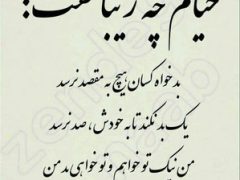 خیام چه زیبا گفت:
بدخواه کسان هیچ به مقصد نرسد
یک بد نکند تا به خودش، صد نرسد
من نیک تو خواهم و تو خواهی بد من